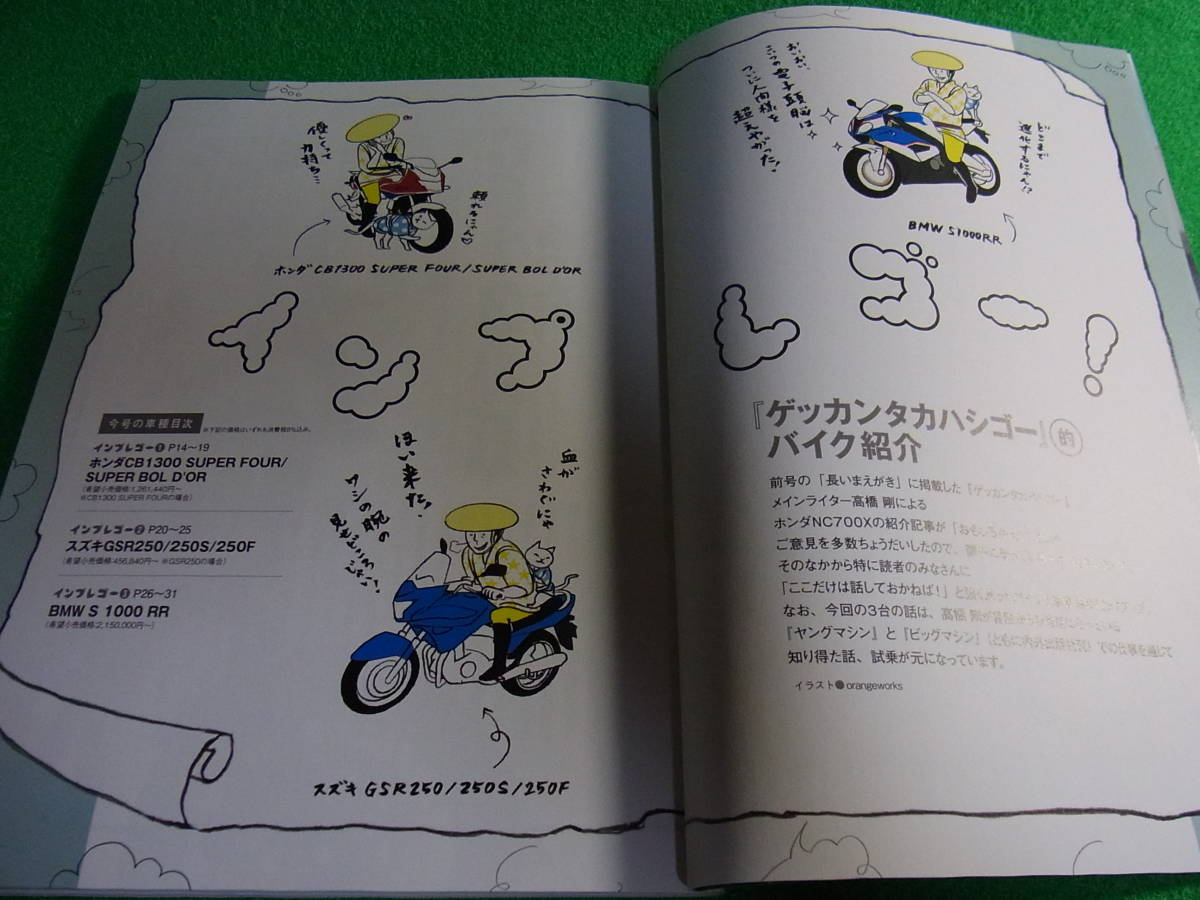 優しくって
力持ち…
頼れるにゃん♡
ホンダ CB1300 SUPER FOUR/SUPER BOL D'OR
インプ
今号の車種目次
※下記の価格はいずれも消費税8%込み。
インプレゴー❶ P14〜19
ホンダCB1300 SUPER FOUR/
SUPER BOL D'OR
(希望小売価格:1,261,440円〜
※CB1300 SUPER FOURの場合)
インプレゴー❷ P20〜25
スズキGSR250/250S/250F
(希望小売価格:456,840円〜 ※GSR250の場合)
インプレゴー❸ P26〜31
BMW S 1000 RR
(希望小売価格:2,150,000円〜)
ほい来た!
ワシの腕の
見せどころじゃい!
血が
さわぐにゃ
スズキ GSR250/250S/250F
おいおい、
こいつの電子頭脳は
ついに人間様を
超えやがった!
どこまで
進化するにゃん!?
BMW S1000RR
レゴー!
『ゲッカンタカハシゴー』的
バイク紹介
前号の「長いまえがき」に掲載した『ゲッカンタカハシゴー』
メインライター高橋 剛による
ホンダNC700Xの紹介記事が「おもしろ
ご意見を多数ちょうだいしたので、
そのなかから特に読者のみなさんに
「ここだけは話しておかねば!」と
なお、今回の3台の話は、高橋 剛が
『ヤングマシン』と『ビッグマシン』(ともに内外出版社発)での仕事を通して
知り得た話、試乗が元になっています。
イラスト●orangeworks